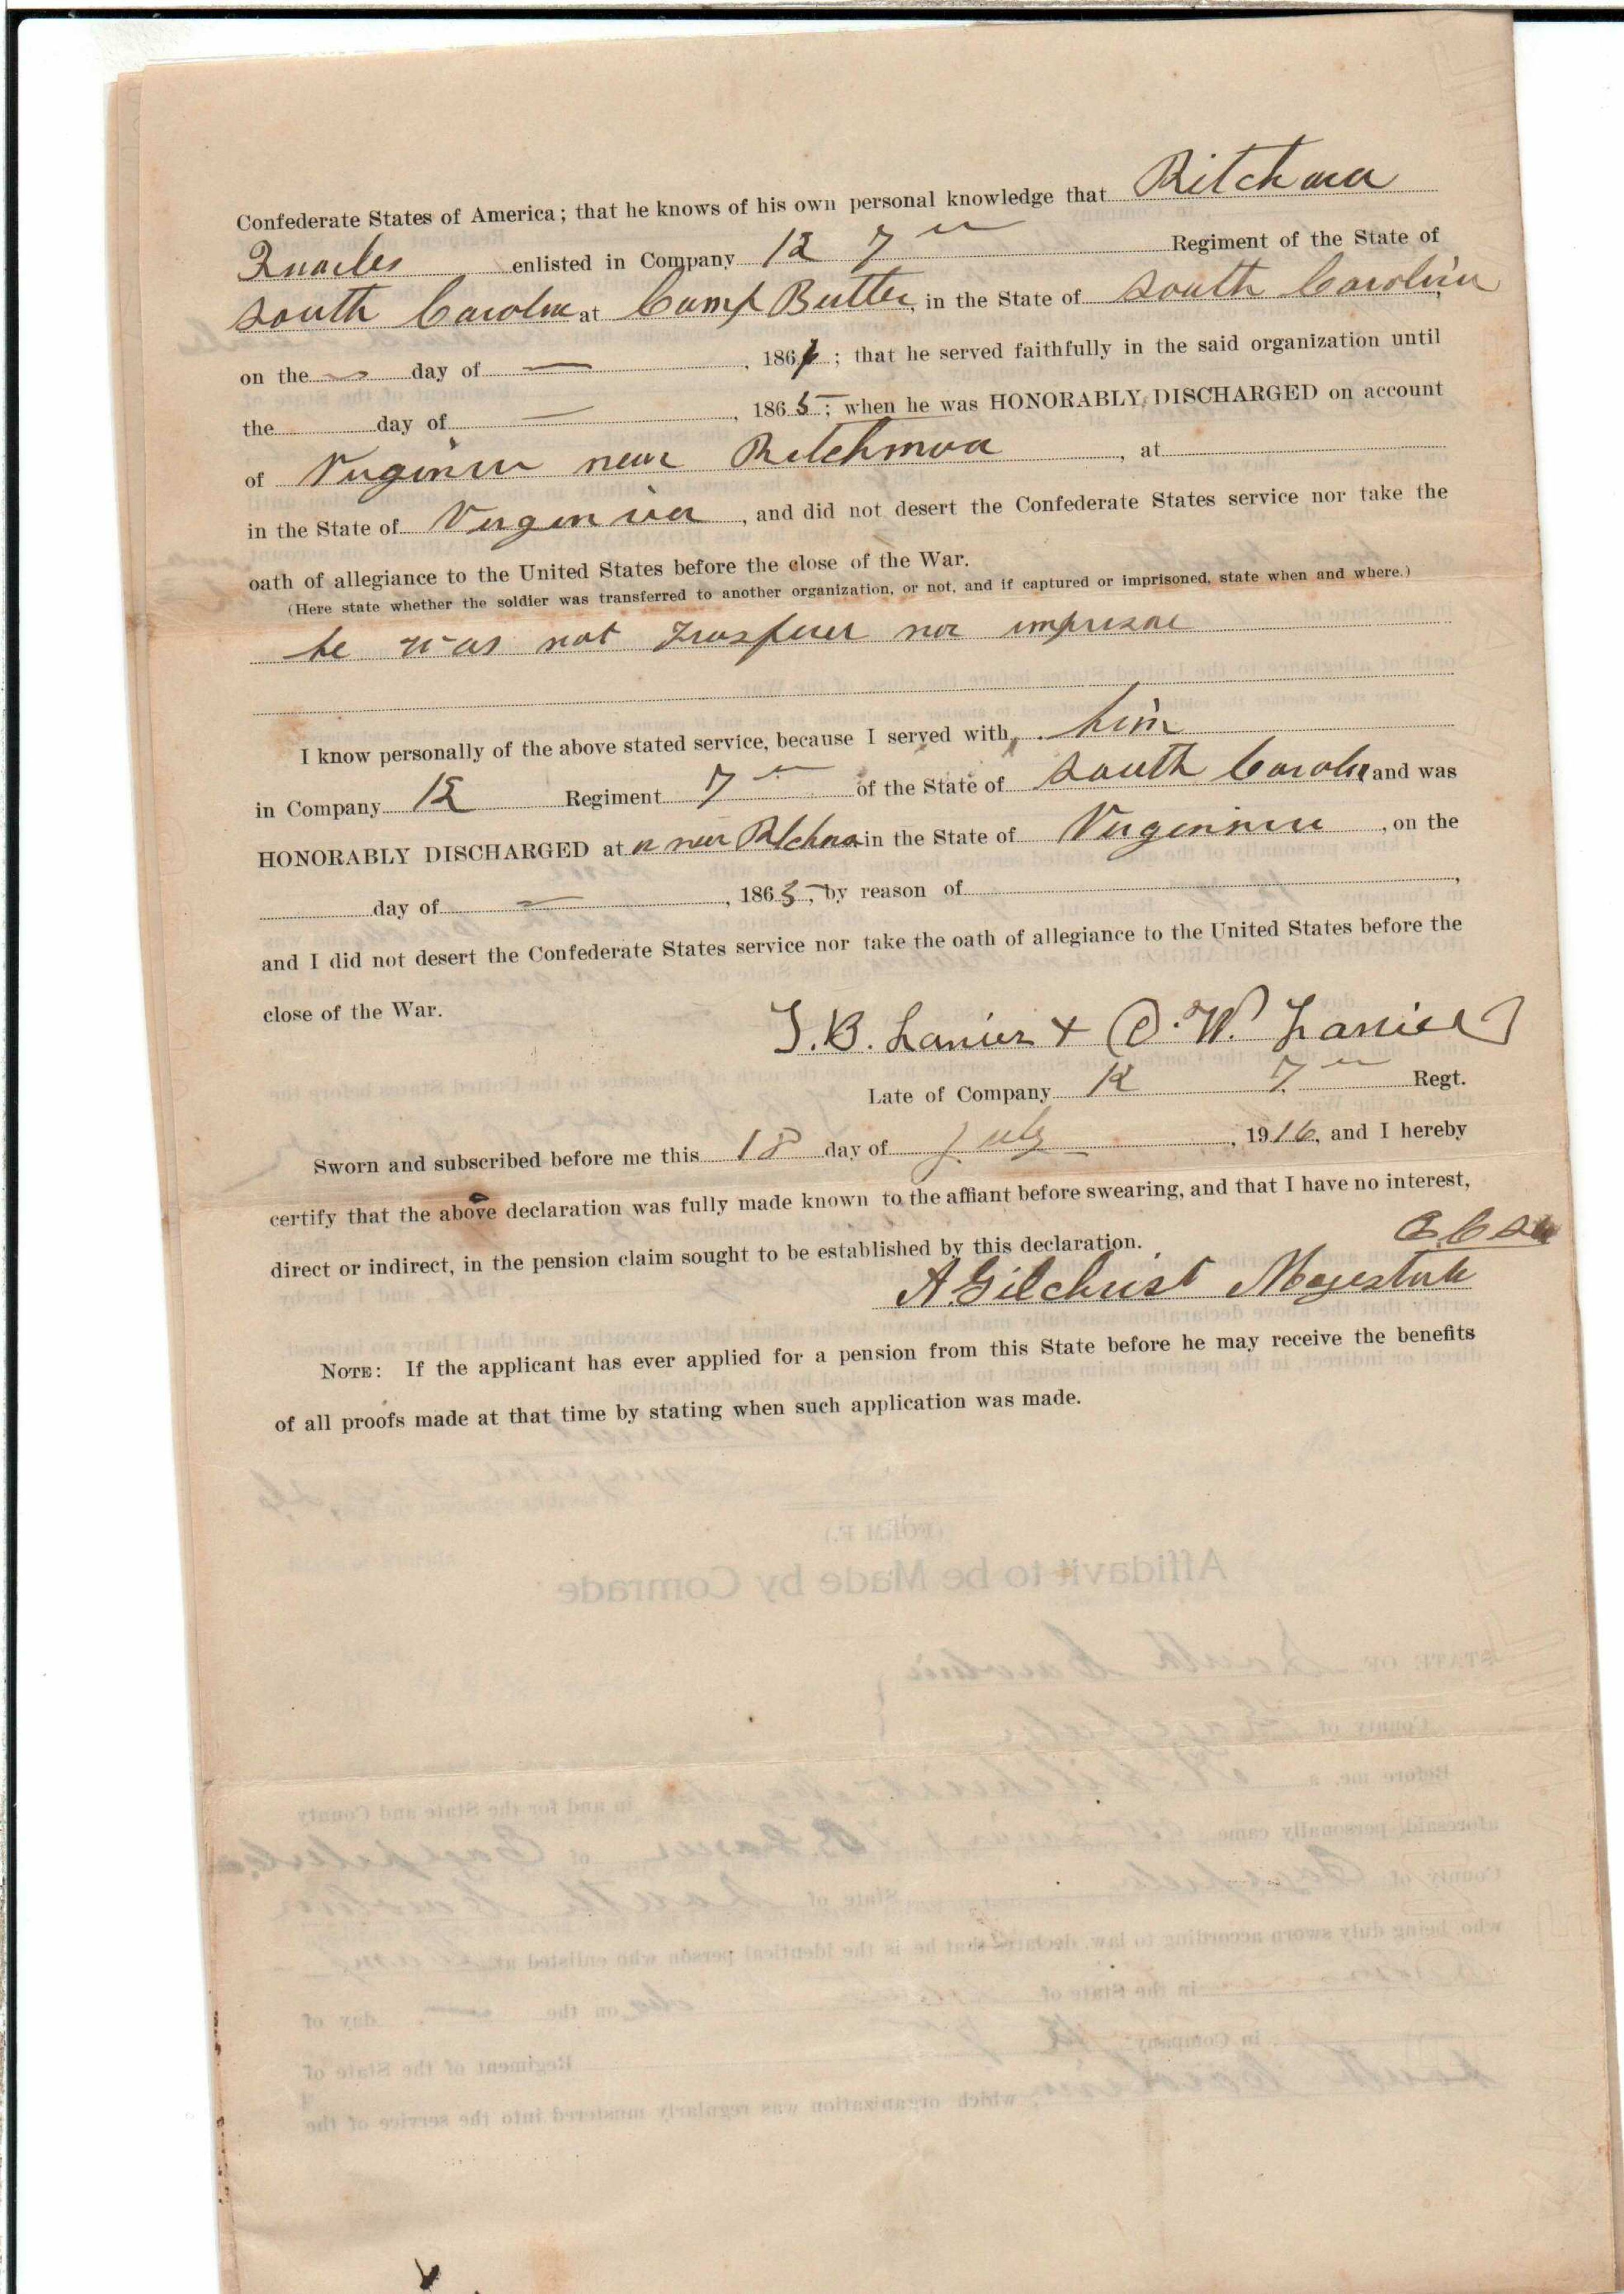 Confederate States of America; that he knows of his own personal knowledge that Ritchma
Quarles enlisted in Company K 7 Regiment of the State of
South Carolin at Camp Butler, in the State of South Carolina
on the day of , 186 ; that he served faithfully in the said organization until
the day of , 1865; when he was HONORABLY DISCHARGED on account
of Virginia near Ritchmon , at
in the State of Virginia, and did not desert the Confederate States service nor take the
oath of allegiance to the United States before the close of the War.
(Here state whether the soldier was transferred to another organization, or not, and if captured or imprisoned, state when and where.)
he was not nor imprison
I know personally of the above stated service, because I served with him
in Company K Regiment 7 of the State of South Carolin and was
HONORABLY DISCHARGED at near in the State of Virginia, on the
day of , 1865, by reason of ,
and I did not desert the Confederate States service nor take the oath of allegiance to the United States before the
close of the War.
T. B. Lanier + O. W. Lanier
Late of Company K 7 Regt.
Sworn and subscribed before me this 18 day of July , 1916, and I hereby
certify that the above declaration was fully made known to the affiant before swearing, and that I have no interest,
direct or indirect, in the pension claim sought to be established by this declaration.
A. Gilchrist Magistrate
NOTE: If the applicant has ever applied for a pension from this State before he may receive the benefits
of all proofs made at that time by stating when such application was made.